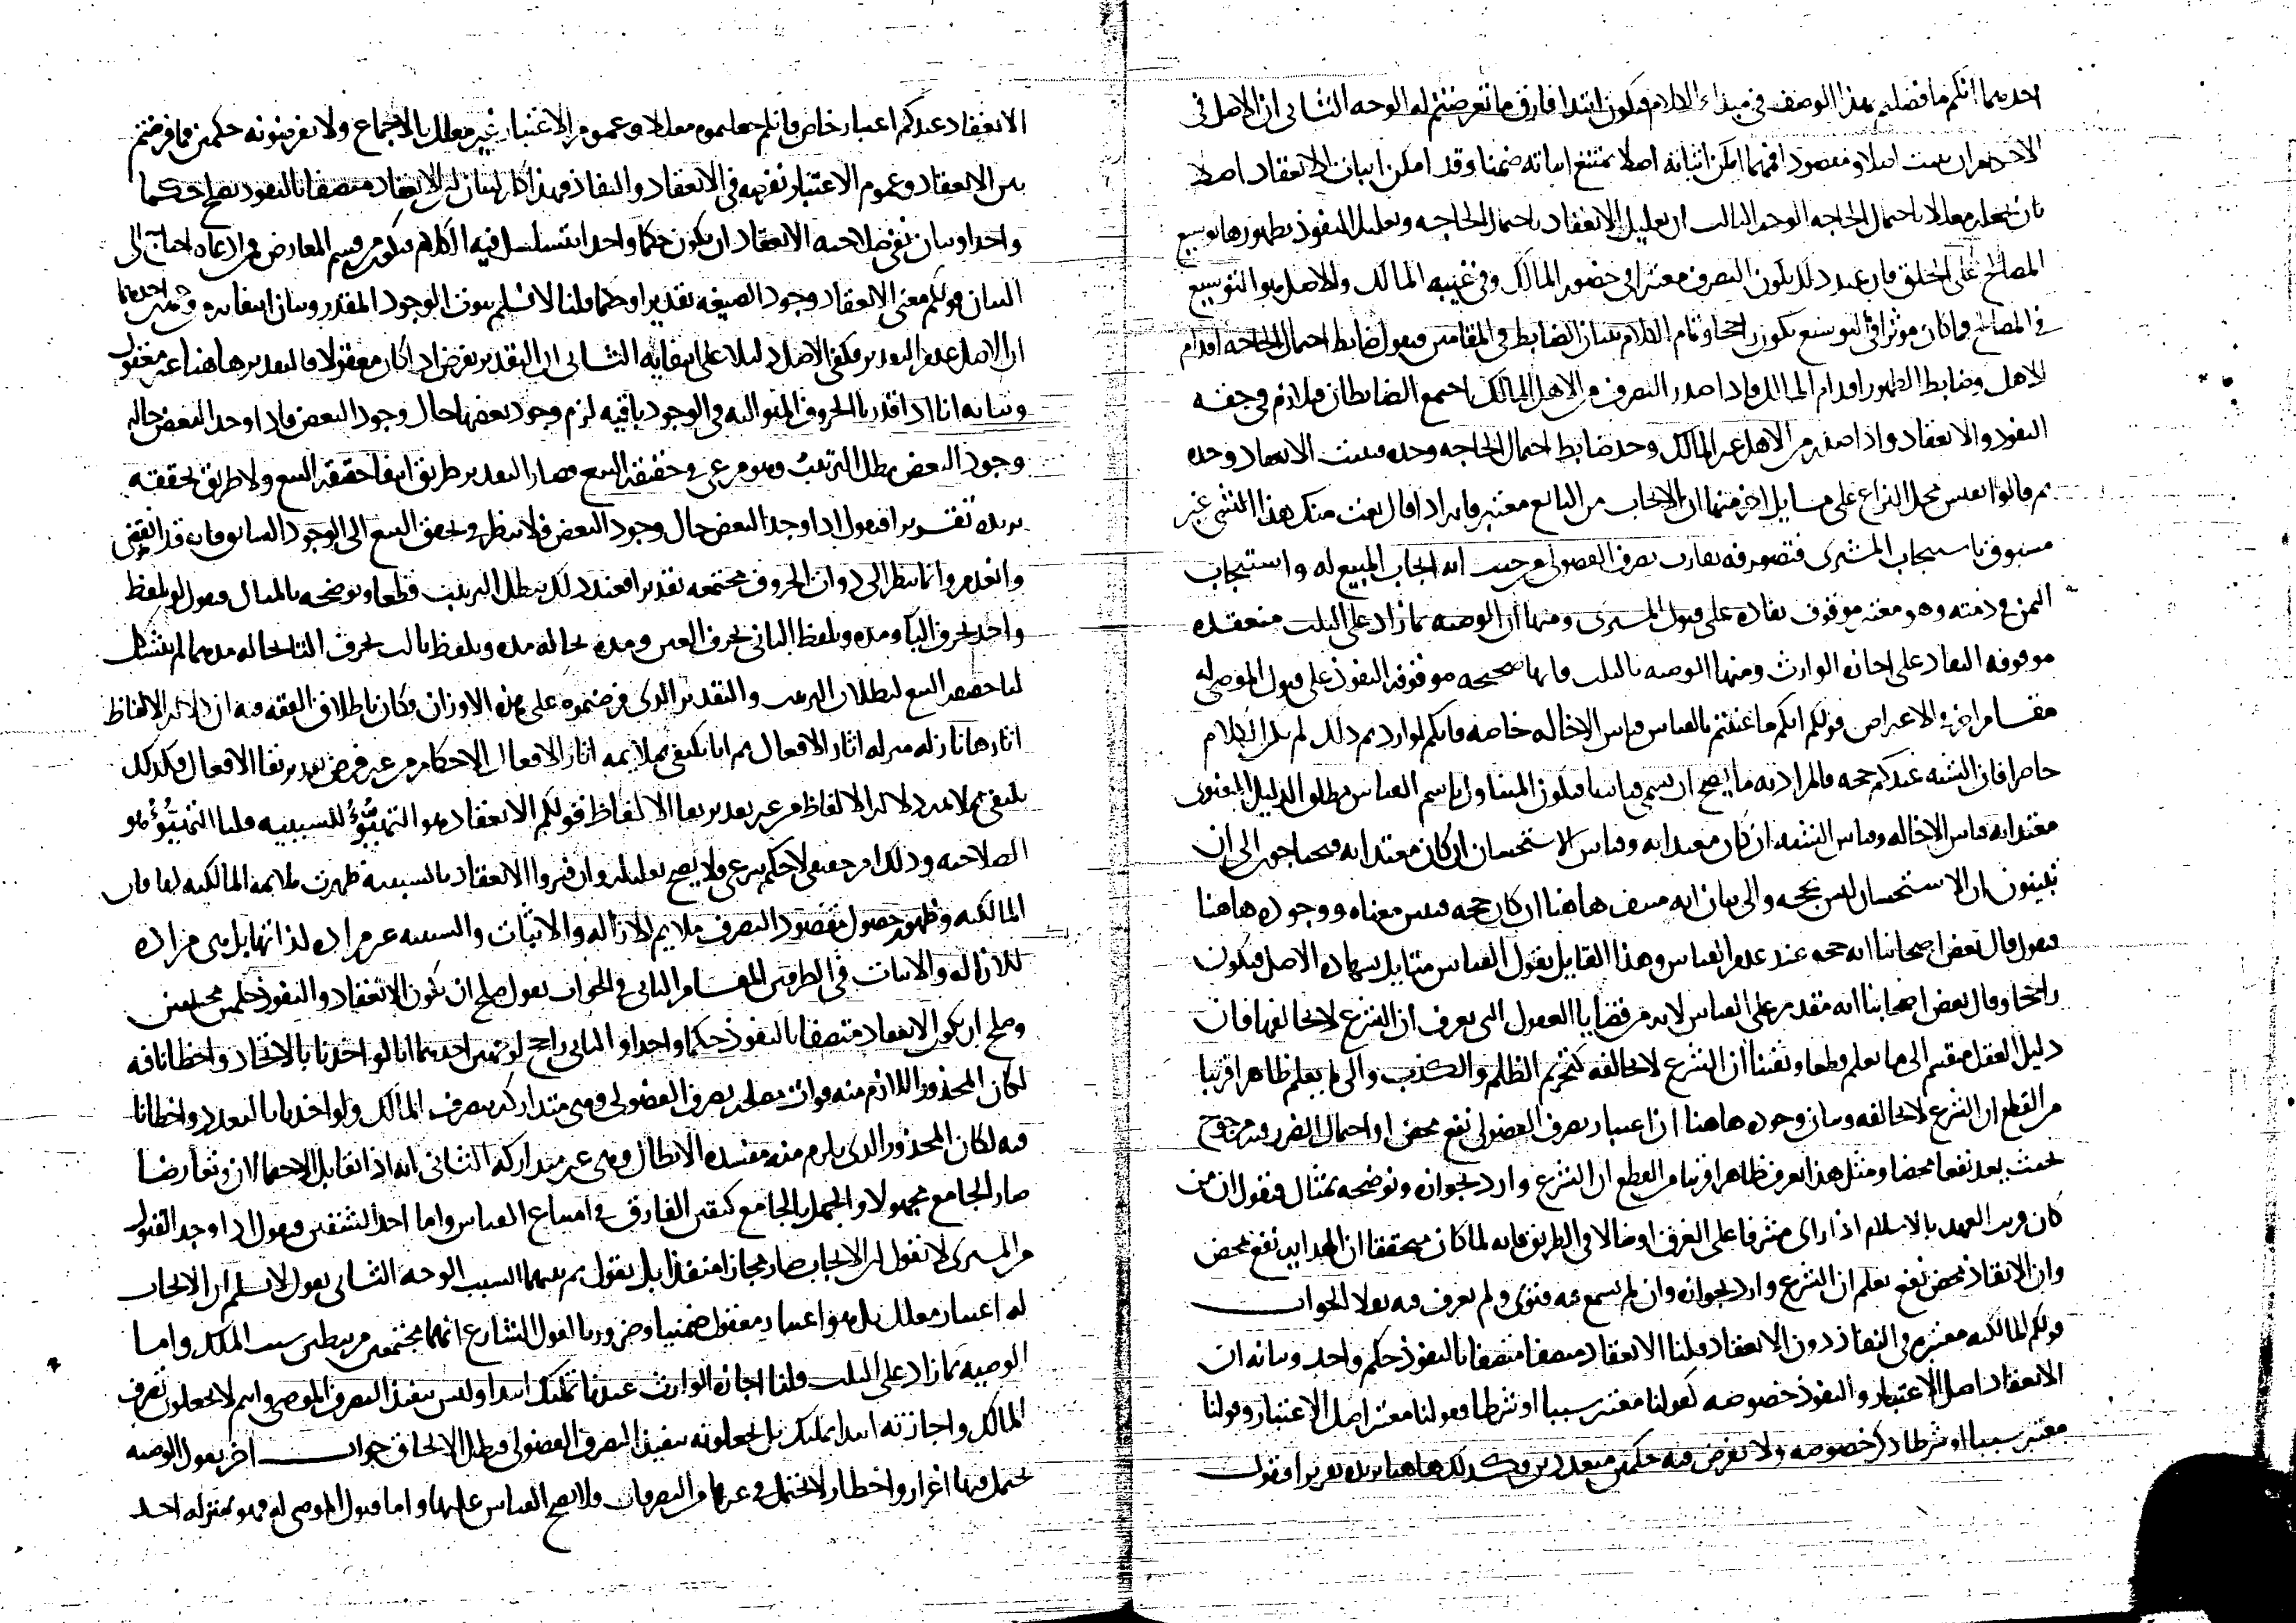 احدهما انكم ما فصلتم هذا الوصف في مبداء الكلام فيكون ابتدا فارق ما تعرضتم له الوجه الثاني ان الاصل في
الاحكام ان يثبت اصلا ومقصودا فمهما امكن اثباته اصلا يمتنع اثباته ضمنا وقد امكن اثبات الانعقاد اصلا
بان نجعله معللا باحتمال الحاجه الوجه الثالث ان تعليل الانعقاد باحتمال الحاجه وتعليل النفوذ بظهورها توسيع
المصالح على الخلق فان عند ذلك يكون التصرف معتبرا في حضور المالك وفي غيبه المالك والاصل هو التوسيع
في المصالح وما كان موثرا في التوسيع يكون راجحا وتمام الكلام ببيان الضابط في المقامين فنقول ضابط احتمال الحاجه اقدام
الاهل وضابط الظهور اقدام المالك فاذا صدر التصرف من الاهل المالك اجتمع الضابطان فيلازم في حقه
النفوذ والانعقاد واذا صدر من الاهل غير المالك وجد ضابط احتمال الحاجه وحده فيثبت الانعقاد وحده
ثم قالوا نقيس محل النزاع على مسايل اخر منها ان الايجاب من البايع معتبر فانه اذا قال بعت منك هذا الشي غير
مسبوق باستيجاب المشترى فتصرفه يقارب تصرف الفضولى من حيث انه ايجاب المبيع له واستيجاب
الثمن في ذمته وهو معتبر موقوف نفاده على قبول المشترى ومنها ان الوصيه بما زاد على الثلث منعقده
موقوفه النفاد على اجازه الوارث ومنها الوصيه بالثلث فانها صحيحه موقوفه النفوذ على قبول الموصى له
مقام اخر في الاعتراض قولكم انكم ما عنيتم بالقياس قياس الاخاله خاصه فانكم لو اردتم ذلك لم يكن الكلام
حاصرا فان الشبه عندكم حجه فالمراد به ما يصح ان يسمى قياسا فيكون المتناول باسم القياس مطلق الدليل المعنوى
معتدا به قياس الاخاله وقياس الشبه ان كان معتدا به وقياس الاستحسان ان كان معتدا به فتحتاجون الى ان
تبينون ان الاستحسان ليس بحجه والى بيان انه منتف هاهنا ان كان حجه فنبين معناه ووجوده هاهنا
فنقول قال بعض اصحابنا انه حجه عند عدم القياس وهذا القايل يقول القياس متايل بشهاده الاصل فيكون
راجحا وقال بعض اصحابنا انه مقدم على القياس لانه من قضايا العقول التى يعرف ان الشرع لا يخالفها فان
دليل العقل منقسم الى ما نعلم قطعا ويقينا ان الشرع لا يخالفه كتحريم الظلم والكذب والى ما يعلم ظاهرا قريبا
من القطع ان الشرع لا يخالفه وبيان وجوده هاهنا ان اعتبار تصرف الفضولى نفع محض او احتمال الضرر فيه مرجوح
بحيث يعد نفعا محضا ومثل هذا يعرف ظاهرا قريبا من القطع ان الشرع وارد بجوازه ونوضحه بمثال فنقول ان من
كان قريب العهد بالاسلام اذا راى مشرفا على الغرق او ضالا في الطريق فانه لما كان متحققا ان الهدايه نفع محض
وان الانقاذ محض نفع يعلم ان الشرع وارد بجوازه وان لم يسمع فيه فتوى ولم يعرف فيه نقلا الجواب
قولكم المالكيه معتبره في النفاذ دون الانعقاد قلنا الانعقاد متصفا بالنفوذ حكم واحد وبيانه ان
الانعقاد اصل الاعتبار والنفوذ خصوصه كقولنا معتبر سببا او شرطا فقولنا معتبر اصل الاعتبار وقولنا
معتبر سببا او شرطا ذكر خصوصه ولا نفرض فيه حكمين متعددين وكذلك هاهنا نزيده تقريرا فنقول
الانعقاد عندكم اعتبار خاص فانكم جعلتموه معللا وعموم الاعتبار غير معلل بالاجماع ولا تفرضونه حكمين فما فرضتم
بين الانعقاد وعموم الاعتبار نفرضه في الانعقاد والنفاذ فهذا كان لبيان ان الانعقاد متصفا بالنفوذ يصلح حكما
واحدا وبيان نفى صلاحيه الانعقاد ان يكون حكما واحدا يتسلسل فيه الكلام فيكون من قسم المعارض فمن ادعاه احتاج الى
البيان قولكم معنى الانعقاد وجود الصيغه تقديرا وحكما قلنا لا نسلم بثبوت الوجود المقدر وبيان انتفائه من وجهين احدهما
ان الاصل عدم التقدير فيكفى الاصل دليلا على انتفايه الثانى ان التقدير يفرض اذا كان معقولا فالتقدير هاهنا غير معقول
وبيانه انا اذا قدرنا الحروف المتواليه في الوجود باقيه لزم وجود بعضها حال وجود البعض فاذا وجد البعض حاله
وجود البعض بطل الترتيب وهو مرعى في حقيقه البيع فصار التقدير طريق انتفا حقيقه البيع ولا طريق تحققه
نزيده تقريرا فنقول اذا وجد البعض حال وجود البعض فلا ينظر في تحقق البيع الى الوجود السابق فانه قد انقضى
وانعدم وانما ينظر الى دوام الحروف مجتمعه تقديرا فعند ذلك يبطل الترتيب قطعا ونوضحه بالمثال فنقول لو تلفظ
واحد بحرف الباء ومده وتلفظ الثانى بحرف العين ومده بحاله مده وتلفظ ثالث بحرف التا بحاله مدهما لم يتشكل
لنا حصر البيع لبطلان الترتيب والتقدير الذى فرضتموه على هذه الاوزان وكان باطلاق الفقه فيه ان دلاله الالفاظ
اثارها نازله منزله اثار الافعال ثم انا نكتفى بملايمه اثار الافعال الى الاحكام من غير فرض تقدير بقا الافعال فكذلك
نكتفى بملايمه دلاله الالفاظ من غير تقدير بقا الالفاظ قولكم الانعقاد هو التهيؤ للسببيه قلنا التهيؤ هو
الصلاحيه وذلك امر حقيقى لا حكم شرعى ولا يصح تعليله وان فسروا الانعقاد بالسببيه ظهرت ملايمه المالكيه لها فان
المالكيه وظهور حصول مقصود التصرف ملايم للازاله والاثبات والسببيه غير مراده لذاتها بل هى مراده
للازاله والاثبات في الطرفين المقام الثانى في الجواب نقول صلح ان تكون الانعقاد والنفوذ حكمين مختلفين
وصلح ان يكون الانعقاد متصفا بالنفوذ حكما واحدا والثانى راجح لوجهين احدهما انا لو اخذنا بالاتحاد واخطانا فيه
لكان المحذور اللازم منه فوات مصلحه تصرف الفضولى وهى متداركه بتصرف المالك ولو اخذنا بالتعدد واخطانا
فيه لكان المحذور الذى يلزم منه مفسده الابطال وهى غير متداركه الثانى انه اذا تقابل الاحتمالان وتعارضا
صار الجامع مجهولا والجهل بالجامع كتيقن الفارق في امتناع القياس واما احد الشقين فنقول اذا وجد القبول
من المشترى لا نقول ان الايجاب صار مجازا منفذا بل نقول تم بهما السبب الوجه الثانى نقول لا نسلم ان الايجاب
له اعتبار معلل بل هو اعتبار معقول ضمنيا وضروريا لقول الشارع انهما مجتمعين مرتبطين سبب الملك واما
الوصيه بما زاد على الثلث قلنا اجازه الوارث عندنا تمليك ابتدا وليس تنفيذ التصرف الموصى وانتم لا تجعلون تصرف
المالك واجازته ابتدا تمليك بل تجعلونه تنفيذ التصرف الفضولى فبطل الالحاق جواب اخر نقول الوصيه
تحتمل فيها اغرار واخطار لا تحتمل في غيرها من التصرفات فلا يصح القياس عليها واما قبول الموصى له فهو بمنزله احد